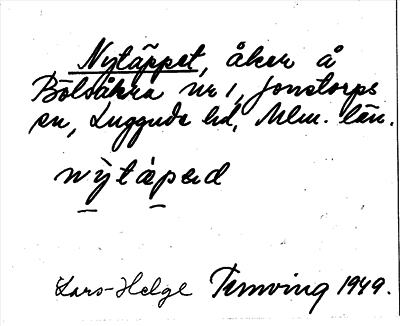 Nytäppet, åker å
Bölsåkra nr 1, Jonstorps
sn, Luggude hd, Mlm. län.
nỳtápəd
Lars-Helge Temving 1949.